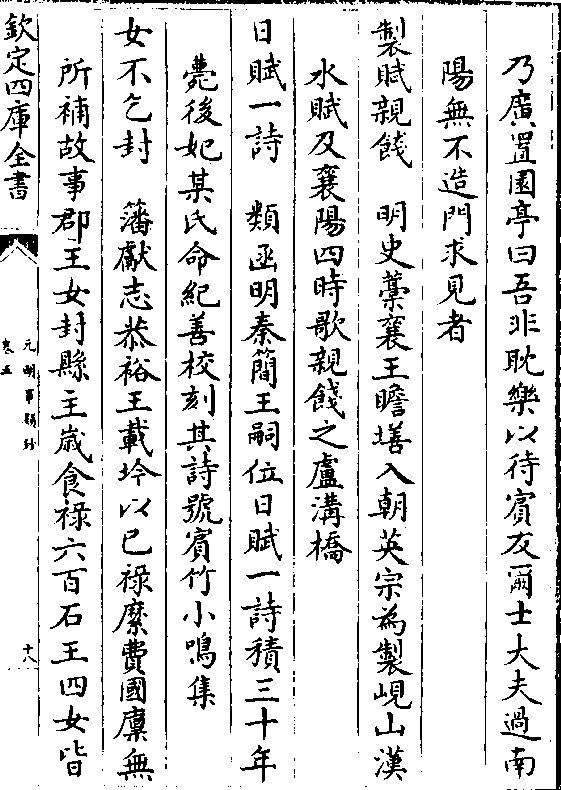 乃廣置園亭曰吾非耽樂以待賓友爾士大夫過南
陽無不造門求見者
製賦親餞　明史藁襄王瞻墡入朝英宗為製峴山漢
水賦及襄陽四時歌親餞之盧溝橋
日賦一詩　類函明秦簡王嗣位日賦一詩積三十年
薨後妃某氏命紀善校刻其詩號賓竹小鳴集
女不乞封　籓獻志恭裕王載坽以已祿縻費國廩無
所補故事郡王女封縣主歲食祿六百石王四女皆
欽定四庫全書
元明事類鈔
卷五
十八